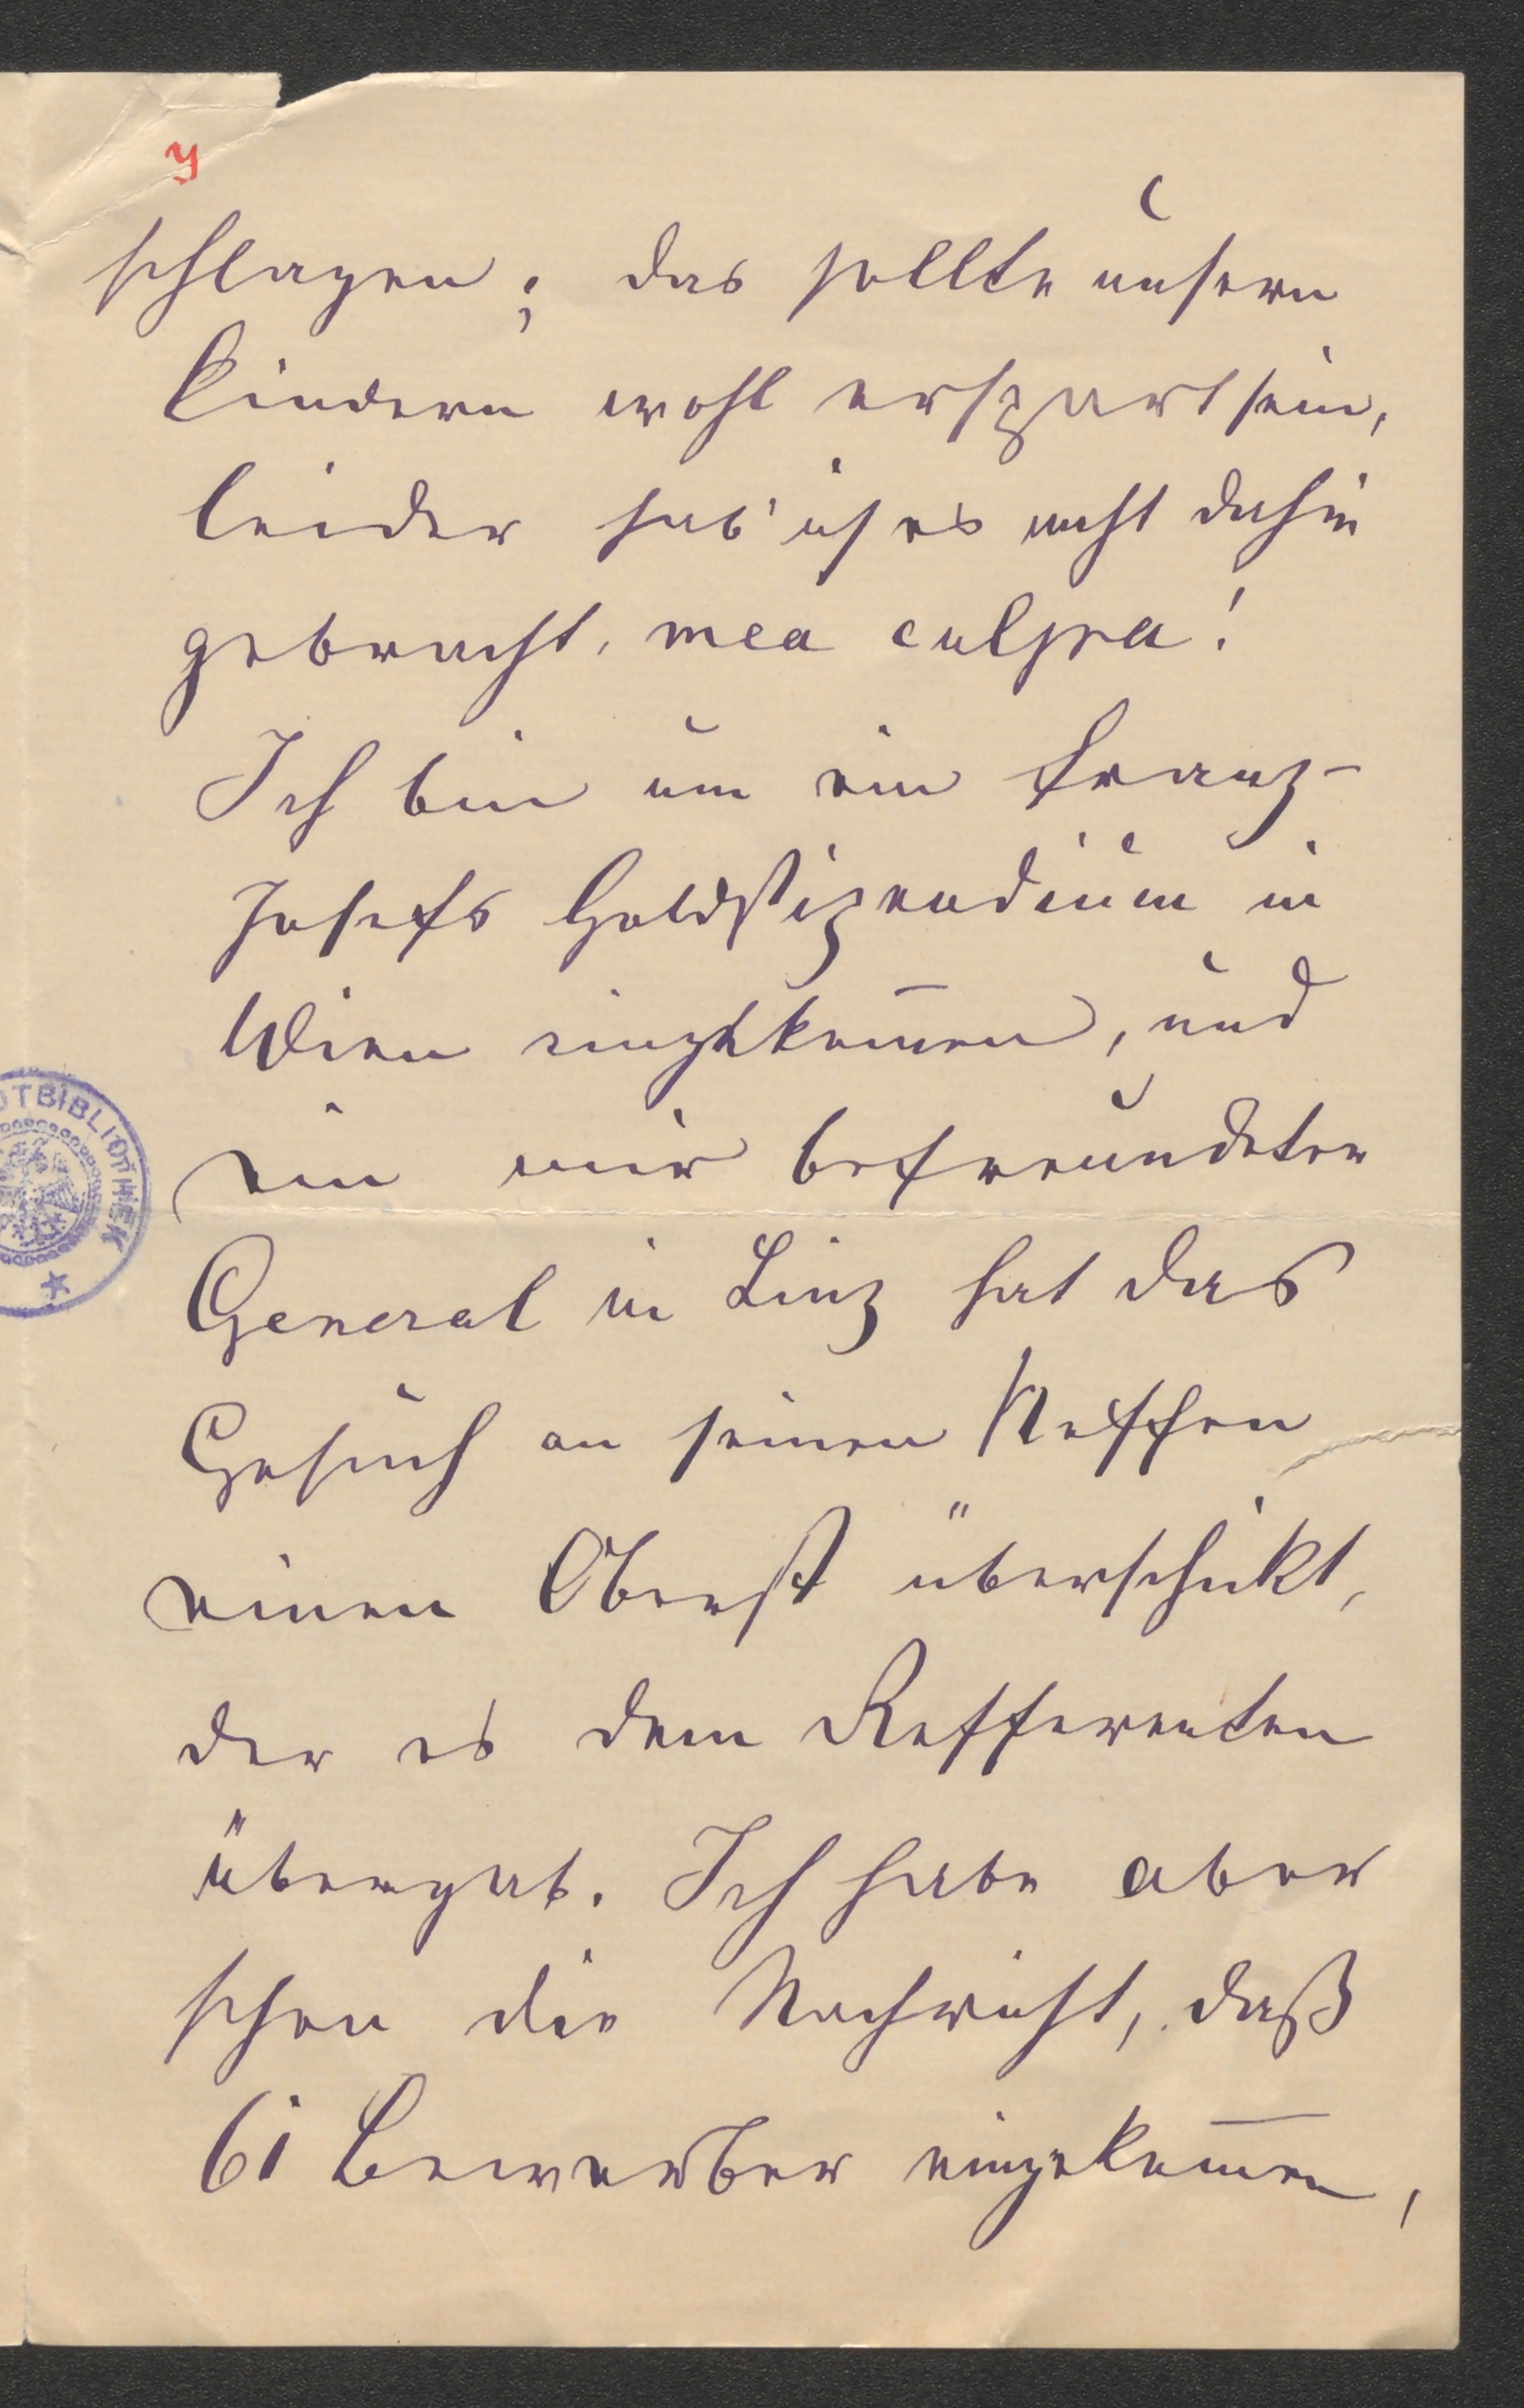 y
schlagen; das sollte unsern
Kindern wohl erspart sein,
leider hab' ich es nicht dahin
gebracht, mea culpa!
Ich bin um ein Franz-
Josefs Goldstipendium in
Wien eingekom̄en, und
ein mir befreundeter
General in Linz hat das
Gesuch an seinen Neffen
einen Oberst überschickt,
der es dem Refferenten
übergab. Ich habe aber
schon die Nachricht, daß
61 Bewerber eingekom̄en,
TBIBLIOTHEK